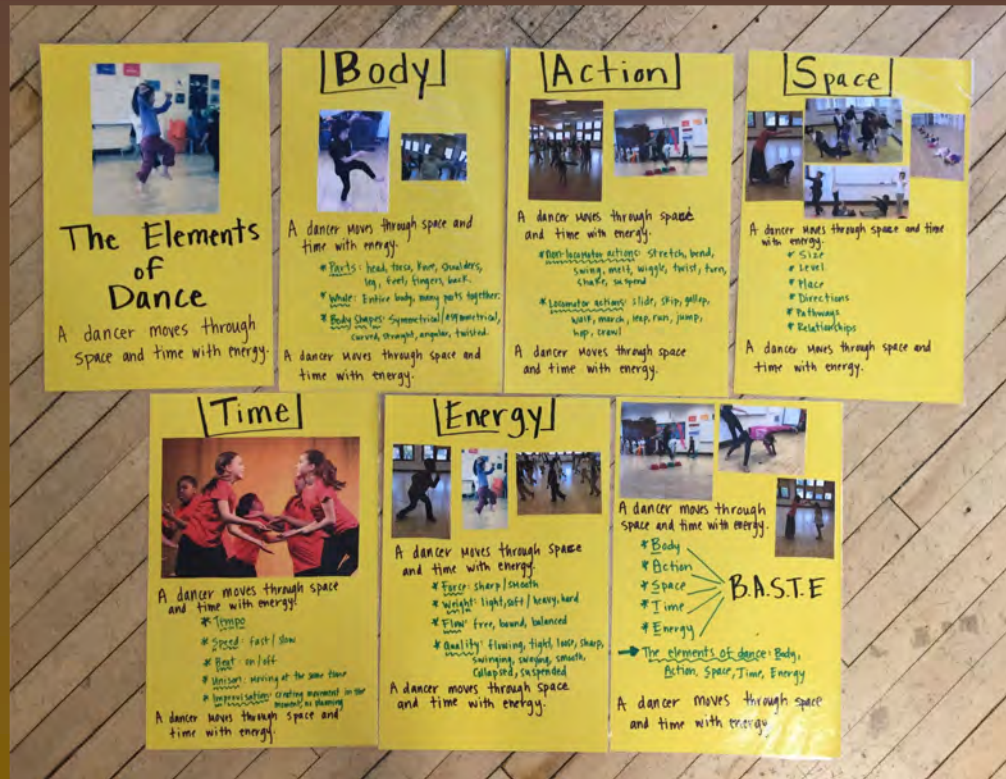 The Elements
of
Dance
A dancer moves through
space and time with energy.
Body
A dancer moves through space and
time with energy.
* Parts: head, torso, knee, shoulders,
leg, feet, fingers, back.
* Whole: Entire body, many parts together.
* Body Shapes: Symmetrical/Asymmetrical,
curved, straight, angular, twisted.
A dancer moves through space and
time with energy.
Action
A dancer moves through space
and time with energy.
* Non-locomotor actions: Stretch, bend,
swing, melt, wiggle, twist, turn,
shake, suspend
* Locomotor actions: slide, skip, gallop,
walk, march, leap, run, jump,
hop, crawl
A dancer moves through space
and time with energy.
Space
A dancer moves through space and time
with energy.
* Size
* Level
* Place
* Directions
* Pathways
* Relationships
A dancer moves through space and
time with energy.
Time
A dancer moves through space
and time with energy.
* Tempo
* Speed: fast/slow
* Beat: on/off
* Unison: Moving at the same time
* Improvisation: creating movement in the
moment, no planning
A dancer moves through space and
time with energy.
Energy
A dancer moves through space
and time with energy.
* Force: sharp/smooth
* Weight: light, soft/heavy, hard
* Flow: free, bound, balanced
* Quality: flowing, tight, loose, sharp,
swinging, swaying, smooth,
collapsed, suspended
A dancer moves through space
and time with energy.
A dancer moves through
space and time with energy.
* Body
* Action
* Space
* Time
* Energy
B.A.S.T.E
→ The elements of dance: Body,
Action, Space, Time, Energy
A dancer moves through space
and time with energy